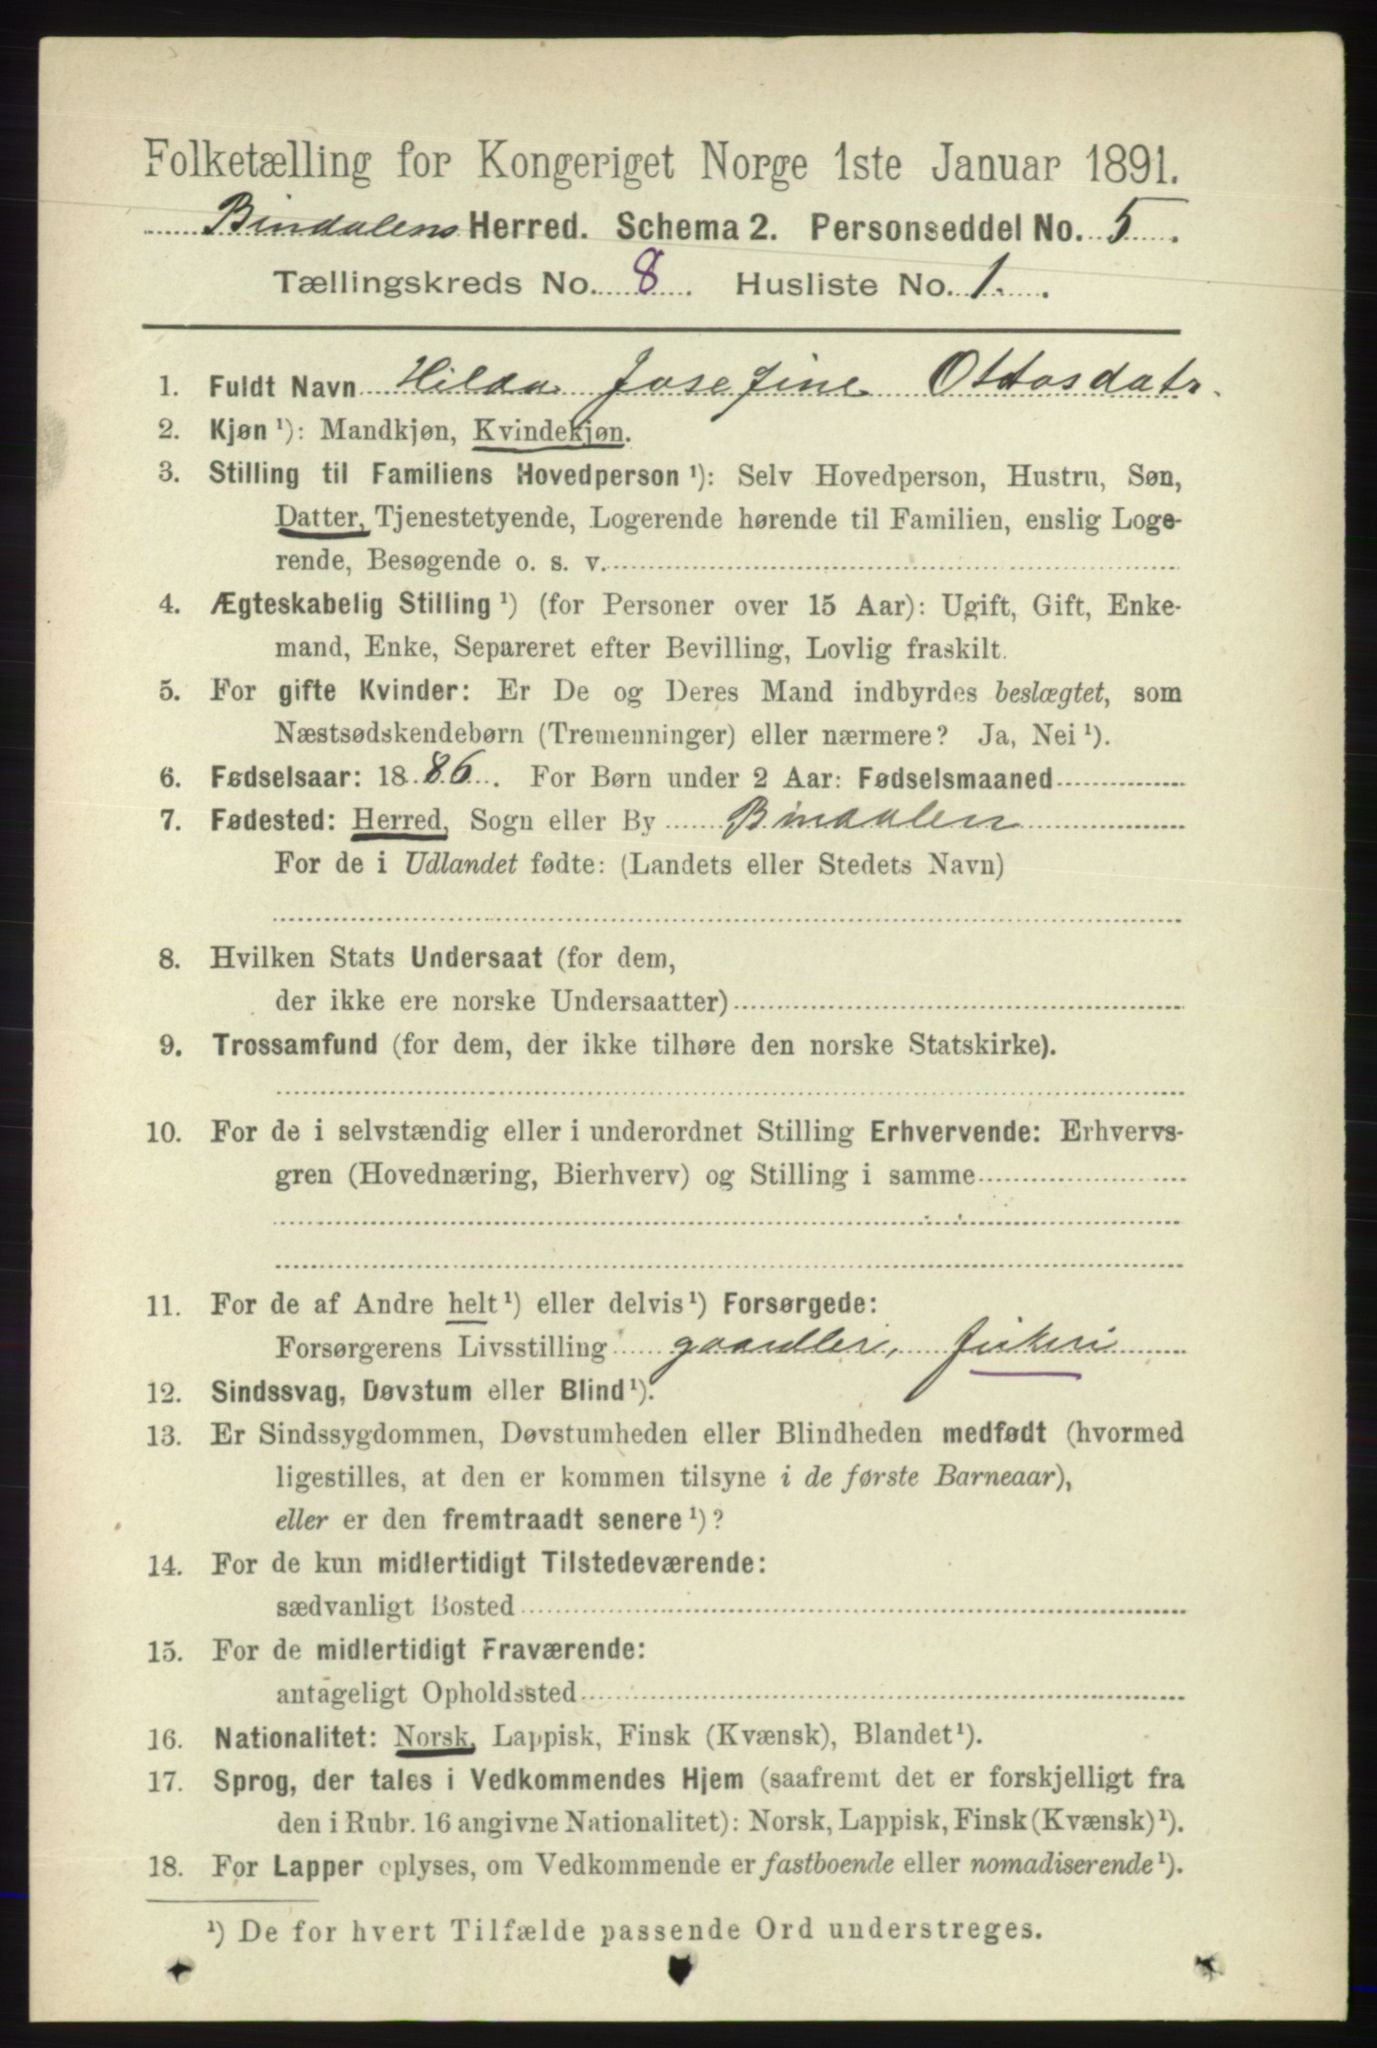 Folketælling for Kongeriget Norge 1ste Januar 1891.
Bindalens Herred. Schema 2. Personseddel No. 5.
Tællingskreds No. 8. Husliste No. 1.
1. Fuldt Navn Hilda Josefine Ottosdatr.
2. Kjøn ¹): Mandkjøn, Kvindekjøn.
3. Stilling til Familiens Hovedperson ¹): Selv Hovedperson, Hustru, Søn,
Datter, Tjenestetyende, Logerende hørende til Familien, enslig Loge-
rende, Besøgende o. s. v.
4. Ægteskabelig Stilling ¹) (for Personer over 15 Aar): Ugift, Gift, Enke-
mand, Enke, Separeret efter Bevilling, Lovlig fraskilt.
5. For gifte Kvinder: Er De og Deres Mand indbyrdes beslægtet, som
Næstsødskendebørn (Tremenninger) eller nærmere? Ja, Nei ¹).
6. Fødselsaar: 1886. For Børn under 2 Aar: Fødselsmaaned
7. Fødested: Herred, Sogn eller By Bindalen
For de i Udlandet fødte: (Landets eller Stedets Navn)
8. Hvilken Stats Undersaat (for dem,
der ikke ere norske Undersaatter)
9. Trossamfund (for dem, der ikke tilhøre den norske Statskirke).
10. For de i selvstændig eller i underordnet Stilling Erhvervende: Erhvervs-
gren (Hovednæring, Bierhverv) og Stilling i samme
11. For de af Andre helt ¹) eller delvis ¹) Forsørgede:
Forsørgerens Livsstilling gaardbr, fiskeri
12. Sindssvag, Døvstum eller Blind ¹).
13. Er Sindssygdommen, Døvstumheden eller Blindheden medfødt (hvormed
ligestilles, at den er kommen tilsyne i de første Barneaar),
eller er den fremtraadt senere ¹)?
14. For de kun midlertidigt Tilstedeværende:
sædvanligt Bosted
15. For de midlertidigt Fraværende:
antageligt Opholdssted
16. Nationalitet: Norsk, Lappisk, Finsk (Kvænsk), Blandet ¹).
17. Sprog, der tales i Vedkommendes Hjem (saafremt det er forskjelligt fra
den i Rubr. 16 angivne Nationalitet): Norsk, Lappisk, Finsk (Kvænsk) ¹).
18. For Lapper oplyses, om Vedkommende er fastboende eller nomadiserende ¹).
¹) De for hvert Tilfælde passende Ord understreges.